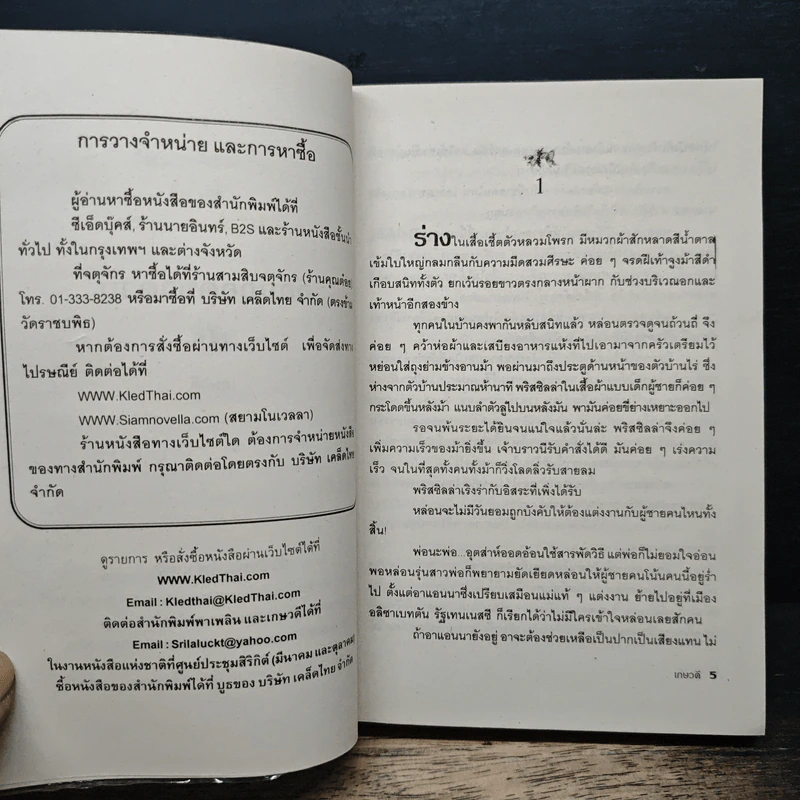 การวางจำหน่าย และการหาซื้อ
ผู้อ่านหาซื้อหนังสือของสำนักพิมพ์ได้ที่
ซีเอ็ดบุ๊คส์, ร้านนายอินทร์, B2S และร้านหนังสือชั้นนำ
ทั่วไป ทั้งในกรุงเทพฯ และต่างจังหวัด
ที่จตุจักร หาซื้อได้ที่ร้านสามสิบจตุจักร (ร้านคุณต๋อย)
โทร. 01-333-8238 หรือมาซื้อที่ บริษัท เคล็ดไทย จำกัด (ตรงข้าม
วัดราชบพิธ)
หากต้องการสั่งซื้อผ่านทางเว็บไซต์ เพื่อจัดส่งทาง
ไปรษณีย์ ติดต่อได้ที่
WWW.KledThai.com
WWW.Siamnovella.com (สยามโนเวลลา)
ร้านหนังสือทางเว็บไซต์ใด ต้องการจำหน่ายหนังสือ
ของทางสำนักพิมพ์ กรุณาติดต่อโดยตรงกับ บริษัท เคล็ดไทย
จำกัด
ดูรายการ หรือสั่งซื้อหนังสือผ่านเว็บไซต์ได้ที่
WWW.KledThai.com
Email : Kledthai@KledThai.com
ติดต่อสำนักพิมพ์พาเพลิน และเกษวดีได้ที่
Email : Srilaluckt@yahoo.com
ในงานหนังสือแห่งชาติที่ศูนย์ประชุมสิริกิติ์ (มีนาคม และตุลาคม)
ซื้อหนังสือของสำนักพิมพ์ได้ที่ บูธของ บริษัท เคล็ดไทย จำกัด
1
ร่างในเสื้อเชิ้ตตัวหลวมโพรก มีหมวกผ้าสักหลาดสีน้ำตาล
เข้มใบใหญ่กลมกลืนกับความมืดสวมศีรษะ ค่อย ๆ จรดฝีเท้าจูงม้าสีดำ
เกือบสนิททั้งตัว ยกเว้นรอยขาวตรงกลางหน้าผาก กับช่วงบริเวณอกและ
เท้าหน้าอีกสองข้าง
ทุกคนในบ้านคงพากันหลับสนิทแล้ว หล่อนตรวจดูจนถ้วนถี่ จึง
ค่อย ๆ คว้าห่อผ้าและเสบียงอาหารแห้งที่ไปเอามาจากครัวเตรียมไว้
หย่อนใส่ถุงย่ามข้างอานม้า พอผ่านมาถึงประตูด้านหน้าของตัวบ้านไร่ ซึ่ง
ห่างจากตัวบ้านประมาณห้านาที พริสซิลล่าในเสื้อผ้าแบบเด็กผู้ชายก็ค่อย ๆ
กระโดดขึ้นหลังม้า แนบลำตัวลู่ไปบนหลังมัน พามันค่อยขี่ย่างเหยาะออกไป
รอจนพ้นระยะได้ยินจนแน่ใจแล้วนั่นล่ะ พริสซิลล่าจึงค่อย ๆ
เพิ่มความเร็วของม้ายิ่งขึ้น เจ้าบราวนี่รับคำสั่งได้ดี มันค่อย ๆ เร่งความ
เร็ว จนในที่สุดทั้งคนทั้งม้าก็วิ่งโลดลิ่วรับสายลม
พริสซิลล่าเริงร่ากับอิสระที่เพิ่งได้รับ
หล่อนจะไม่มีวันยอมถูกบังคับให้ต้องแต่งงานกับผู้ชายคนไหนทั้ง
สิ้น!
พ่อนะพ่อ...อุตส่าห์ออดอ้อนใช้สารพัดวิธี แต่พ่อก็ไม่ยอมใจอ่อน
พอหล่อนรุ่นสาวพ่อก็พยายามยัดเยียดหล่อนให้ผู้ชายคนโน้นคนนี้อยู่ร่ำ
ไป ตั้งแต่อาแอนนาซึ่งเปรียบเสมือนแม่แท้ ๆ แต่งงาน ย้ายไปอยู่ที่เมือง
อลิซาเบทตัน รัฐเทนเนสซี ก็เรียกได้ว่าไม่มีใครเข้าใจหล่อนเลยสักคน
ถ้าอาแอนนายังอยู่ อาจะต้องช่วยเหลือเป็นปากเป็นเสียงแทน ไม่
เกษวดี 5